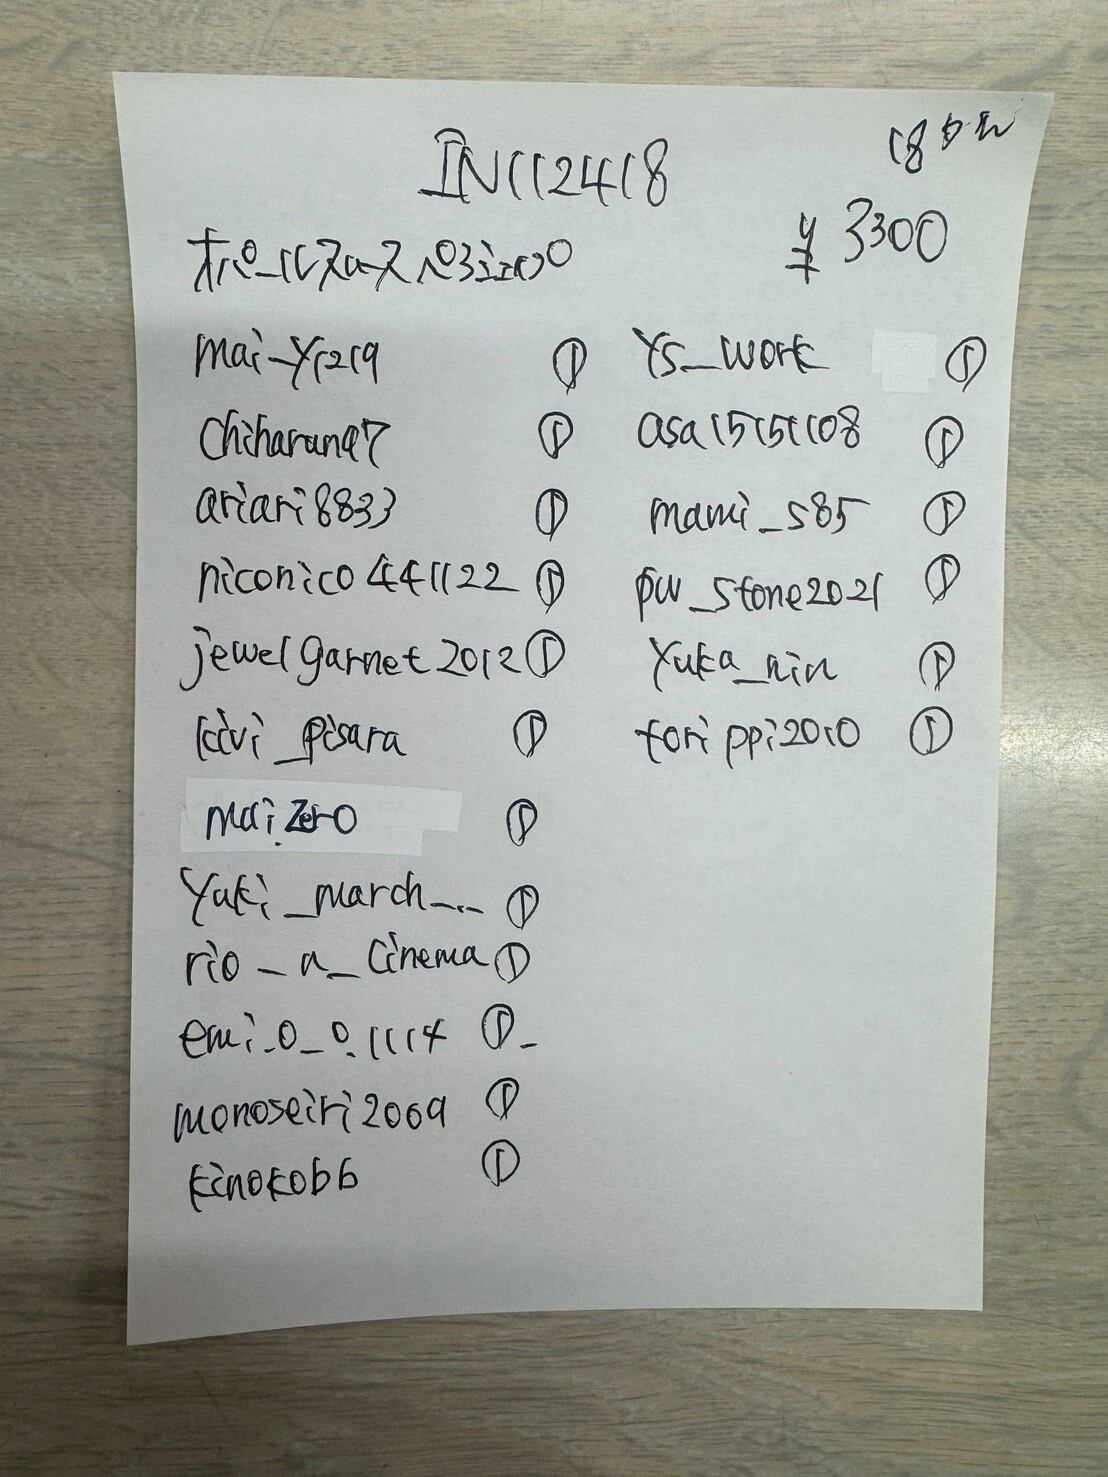 IN112418
18
¥3300
mai-y1219
①
chiharuna7
①
ariari8833
①
niconico441122
①
jewelgarnet2012
①
kivi_pisara
①
mai.zero
①
yuki_march_..
①
rio_a_cinema
①
emi.0_0.1114
①_
monoseiri2009
①
kinoko66
①
Ys_work
①
asa15151108
①
mami_s85
①
pw_stone2021
①
yuka_nin
①
torippi2010
①